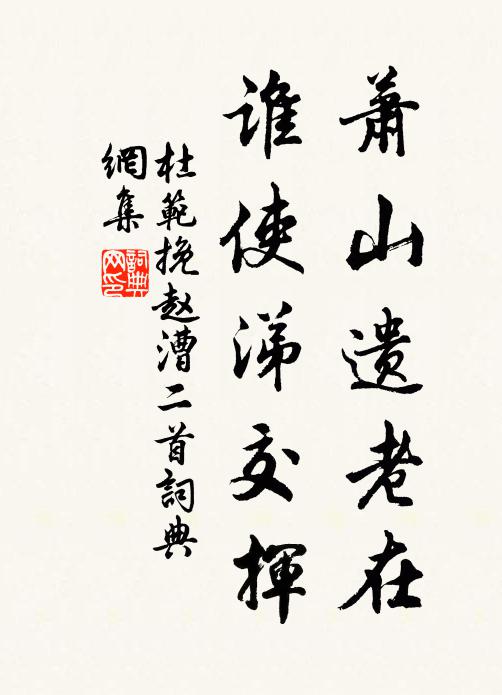 蕭山遗老在
誰使涕交揮
杜範挽赵漕二首詞典
網集
詞典网印